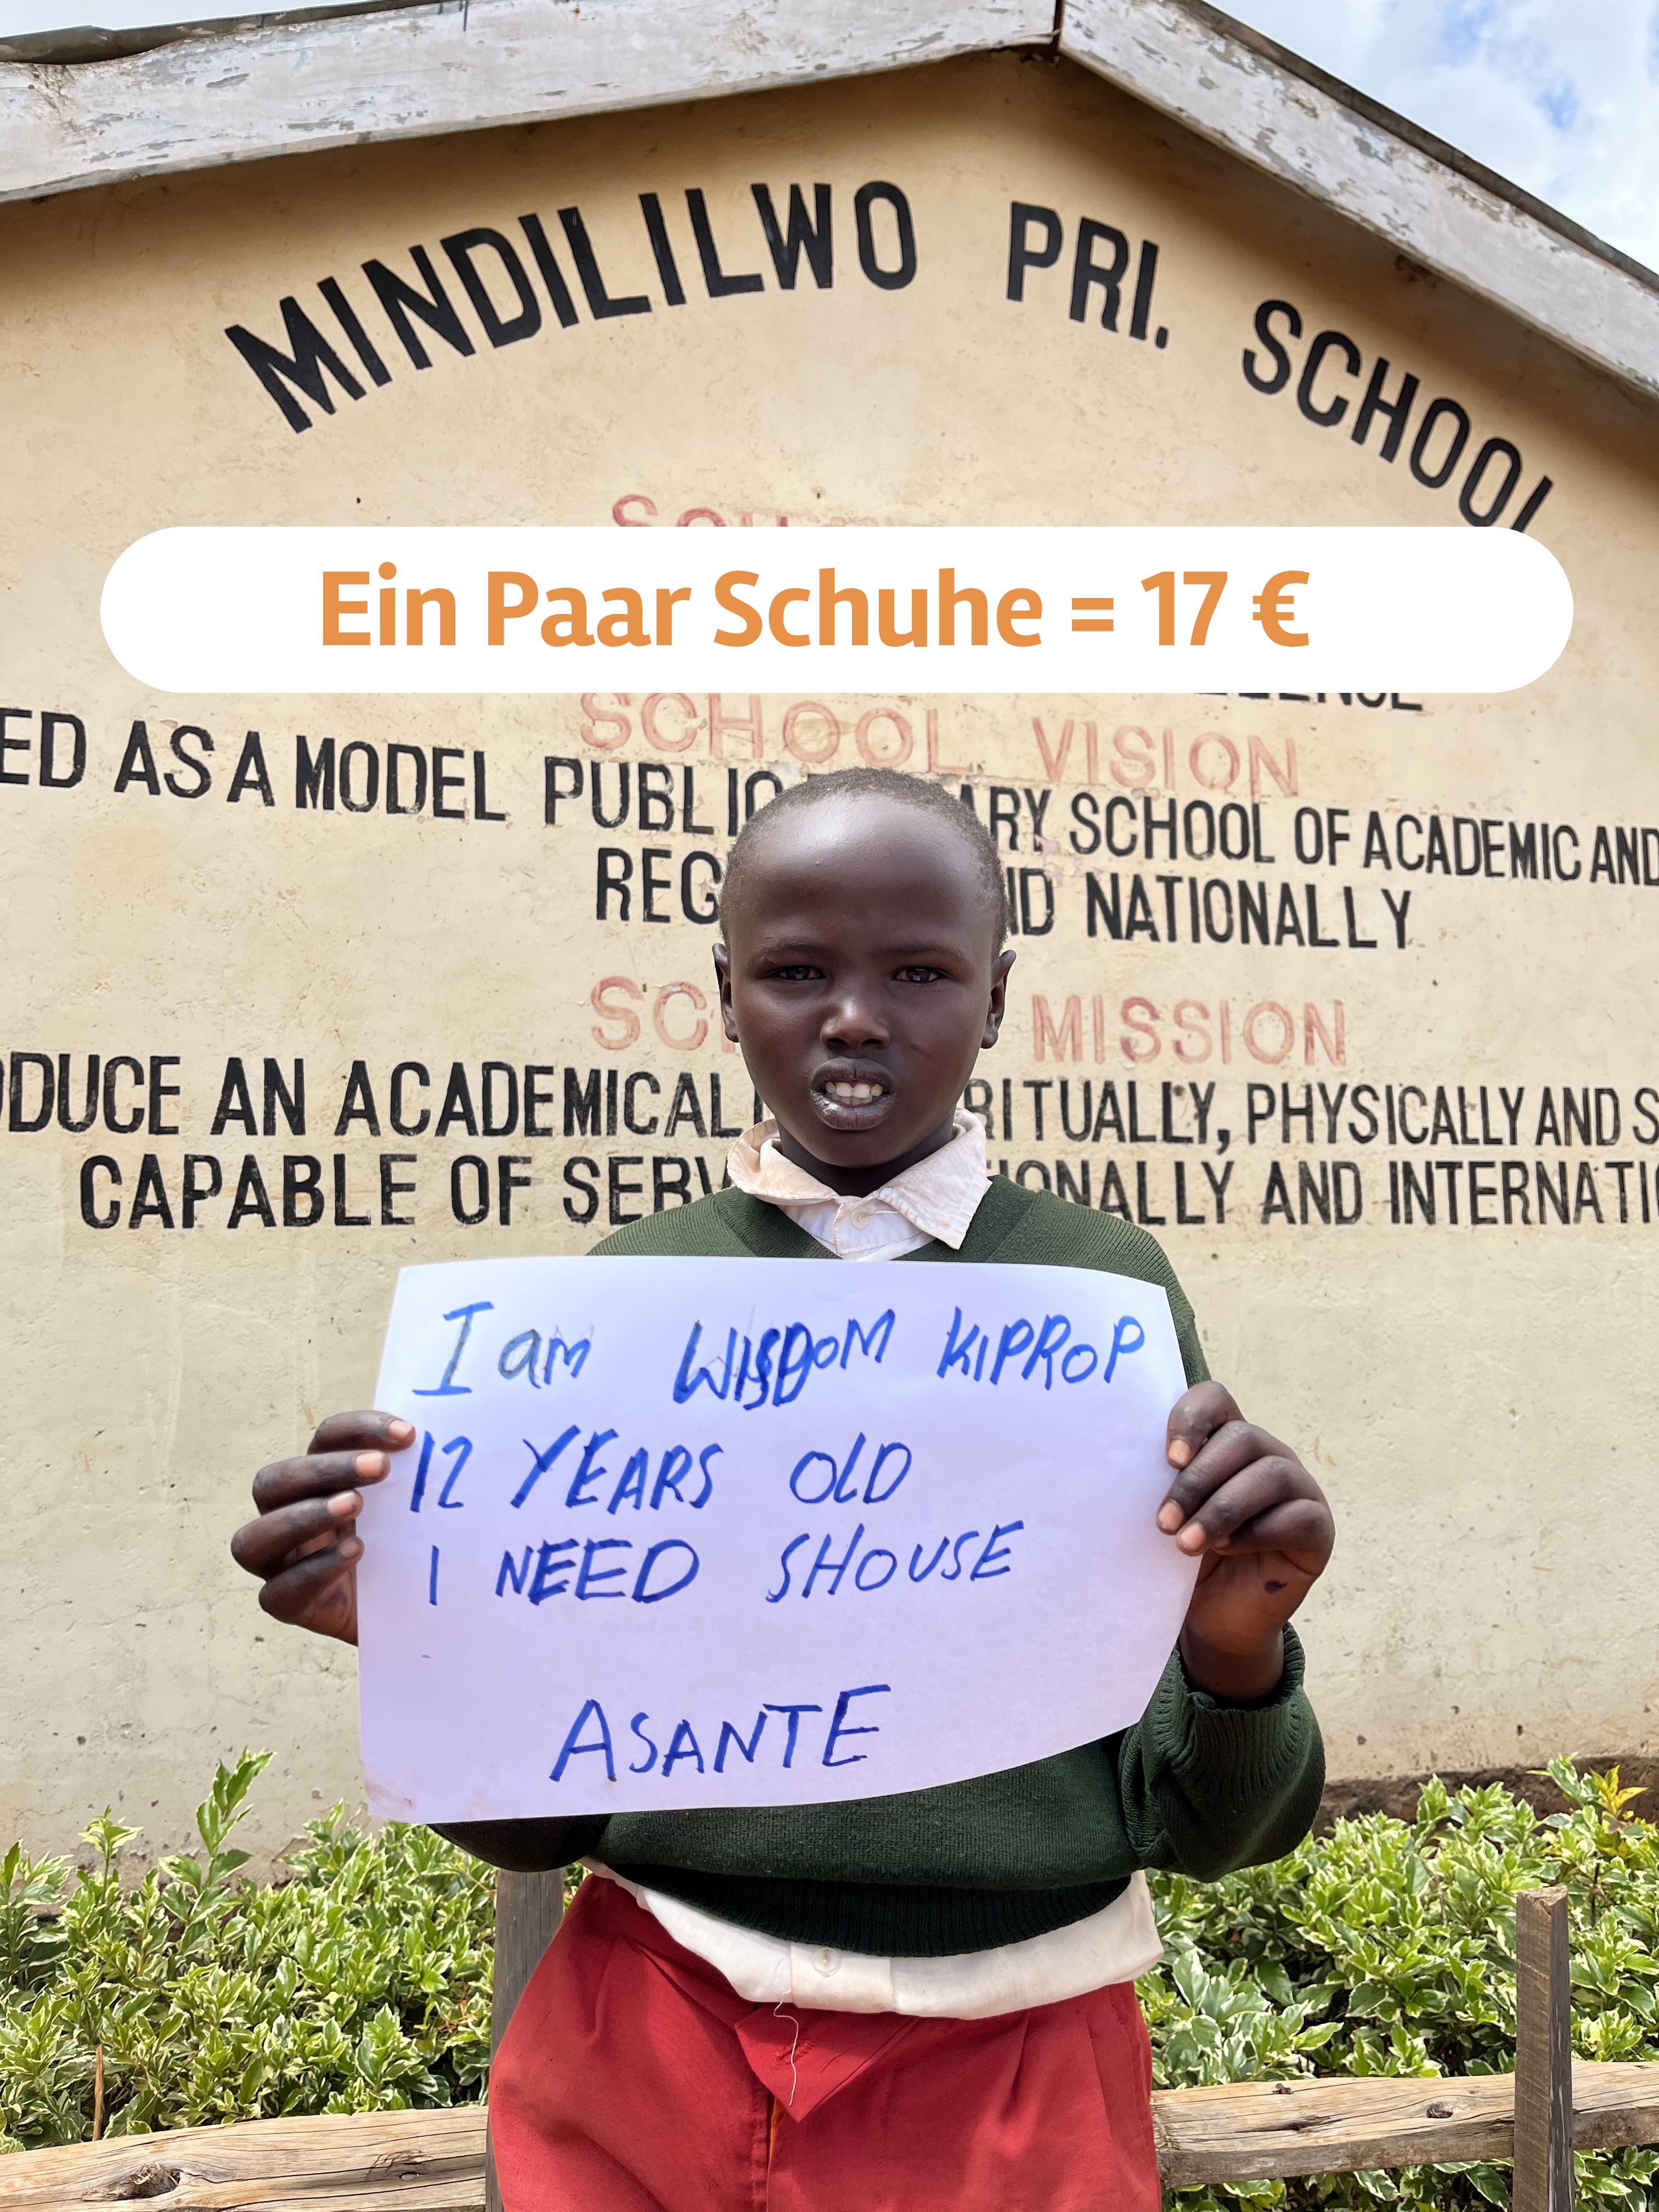 MINDILILWO PRI. SCHOOL
Ein Paar Schuhe = 17 €
SCHOOL VISION
ED AS A MODEL PUBLIC ARY SCHOOL OF ACADEMIC AND
REG ND NATIONALLY
MISSION
ODUCE AN ACADEMICAL RITUALLY, PHYSICALLY AND S
CAPABLE OF SERV IONALLY AND INTERNATIO
I am WISDOM KIPROP
12 YEARS OLD
I NEED SHOUSE
ASANTE